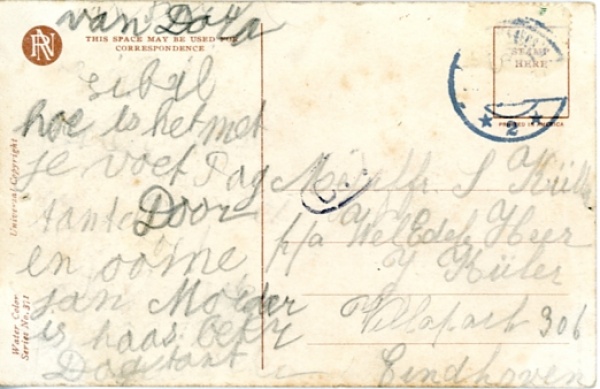 van Dora
THIS SPACE MAY BE USED FOR
CORRESPONDENCE
STAMP
HERE
PRINTED IN AMERICA
2
Sibil
hoe is het met
je voet Dag
tante Door
en oome
Jan Moeder
is haas
Dag tante
S
p/a WelEdel Heer
J
306
Eindhoven
Universal Copyright
Water Color
Series No. 371